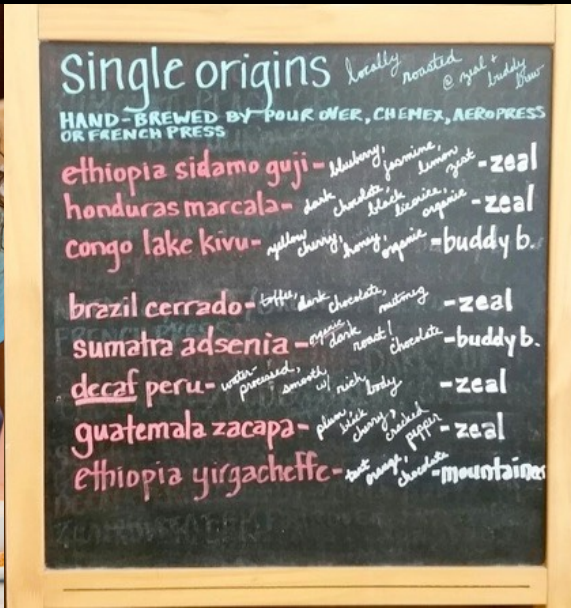 single origins locally roasted @ zeal + buddy brew
HAND-BREWED BY POUR OVER, CHEMEX, AEROPRESS
OR FRENCH PRESS
ethiopia sidamo guji - blueberry, jasmine, lemon zest - zeal
honduras marcala - dark chocolate, black licorice, organic - zeal
congo lake kivu - yellow cherry, honey, organic - buddy b.
brazil cerrado - toffee, dark chocolate, nutmeg - zeal
sumatra adsenia - organic, dark roast! chocolate - buddy b.
decaf peru - water-processed, smooth w/ rich body - zeal
guatemala zacapa - plum, black cherry, cracked pepper - zeal
ethiopia yirgacheffe - tart orange, chocolate - mountaineer